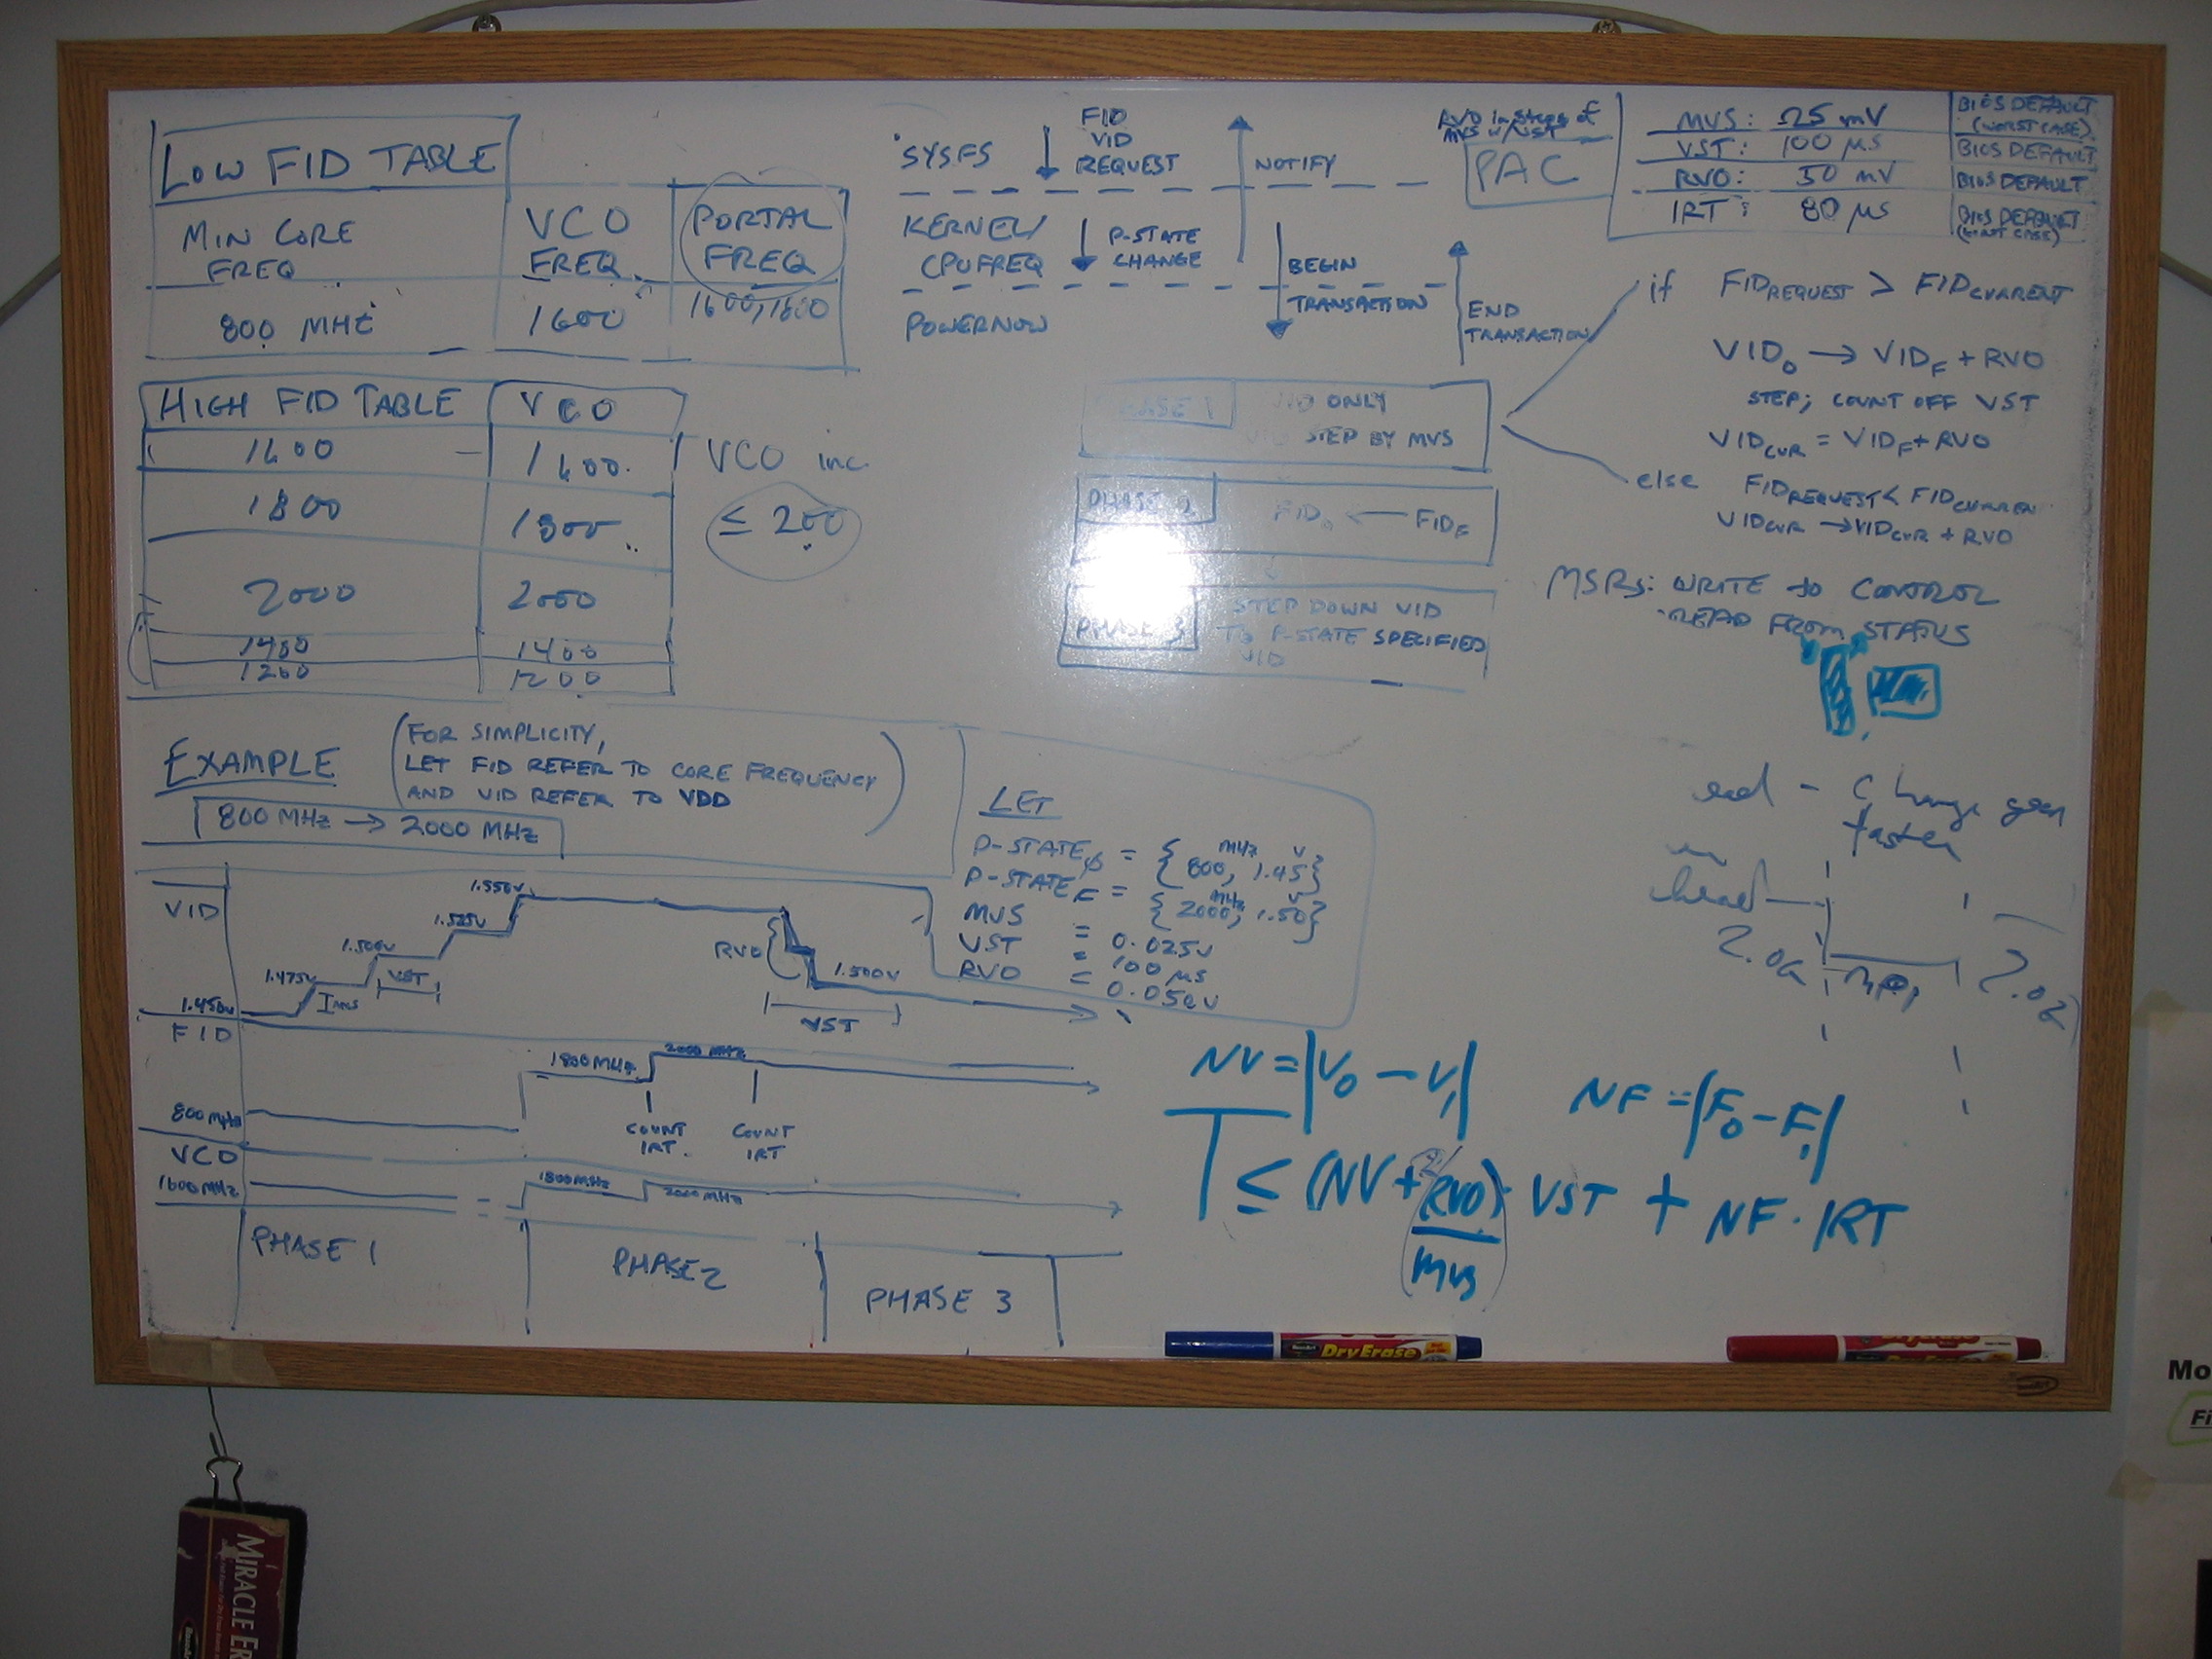 LOW FID TABLE
MIN CORE FREQ
VCO FREQ
PORTAL FREQ
800 MHz
1600
1600, 1800
HIGH FID TABLE
VCO
1600
1600
1800
1800
2000
2000
1400
1400
1200
1200
VCO inc.
≤ 200
SYSFS
FID
VID
REQUEST
NOTIFY
KERNEL/
CPUFREQ
P-STATE
CHANGE
BEGIN
TRANSACTION
POWERNOW
END
TRANSACTION
RVO in steps of
MVS w/VST
PAC
MVS: 25 mV
BIOS DEFAULT
(WORST CASE)
VST: 100 µs
BIOS DEFAULT
RVO: 50 mV
BIOS DEFAULT
IRT: 80 µs
BIOS DEFAULT
PHASE 1
VID ONLY
STEP BY MVS
PHASE 2
FID₀ ← FID_F
PHASE 3
STEP DOWN VID
TO P-STATE SPECIFIED
VID
if FID_REQUEST > FID_CURRENT
VID₀ → VID_F + RVO
STEP; COUNT OFF VST
VID_CUR = VID_F + RVO
else FID_REQUEST < FID_CURREN
VID_CUR → VID_CUR + RVO
MSRs: WRITE to CONTROL
READ FROM STATUS
EXAMPLE
(FOR SIMPLICITY,
LET FID REFER TO CORE FREQUENCY
AND VID REFER TO VDD)
800 MHz → 2000 MHz
LET
P-STATE₀ = {800 MHz, 1.45 V}
P-STATE_F = {2000 MHz, 1.50 V}
MVS = 0.025V
VST = 100 µs
RVO = 0.050V
VID
1.450V
1.475V
1.500V
1.525V
1.550V
VST
RVO
1.500V
VST
FID
800 MHz
1800 MHz
2000 MHz
COUNT
IRT
COUNT
IRT
VCO
1600 MHz
1800 MHz
2000 MHz
PHASE 1
PHASE 2
PHASE 3
faster
2.0G
NV = |V₀ - V₁|
NF = |F₀ - F₁|
T ≤ (NV + RVO/MVS) · VST + NF · IRT
DryErase
DryErase
MIRACLE ER
Mo
Fi